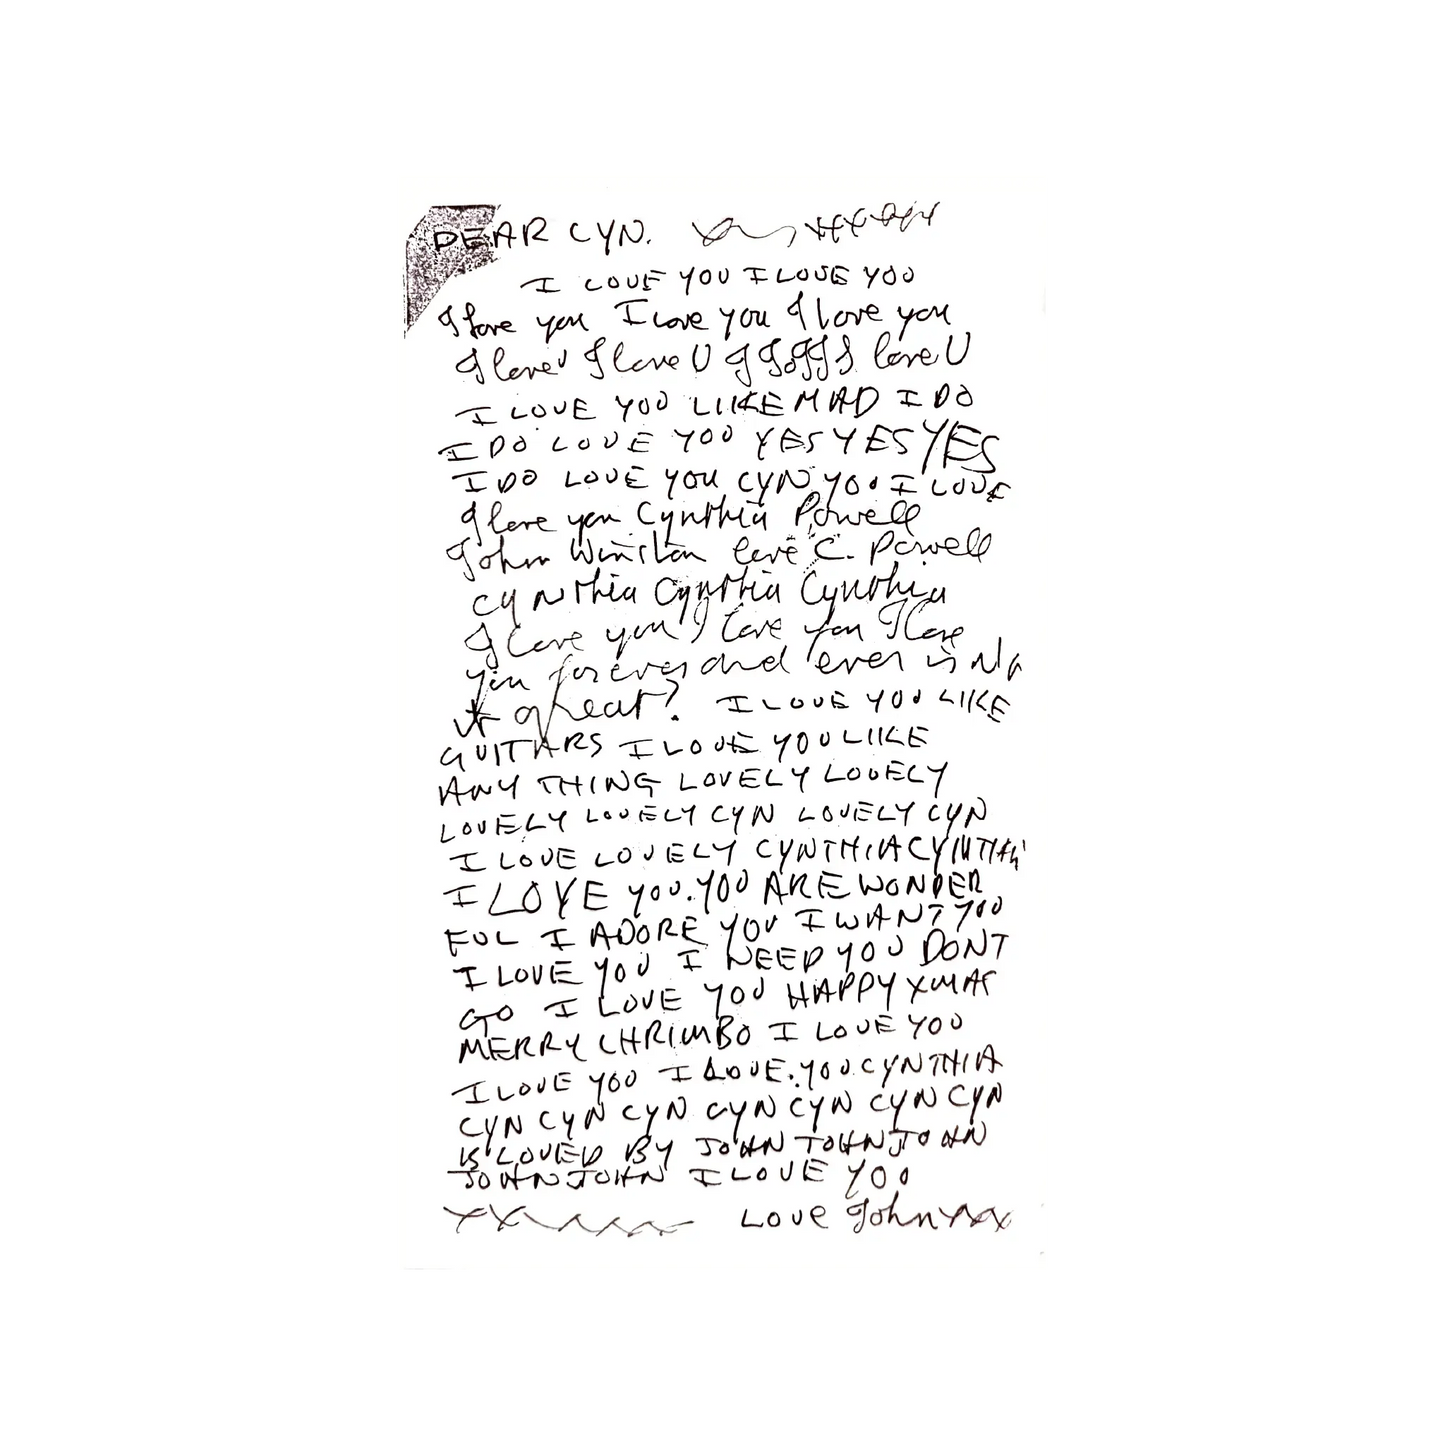 DEAR CYN.
I LOVE YOU I LOVE YOU
I love you I love you I love you
I love U I love U I I I I I I love U
I LOVE YOU LIKE MAD I DO
I DO LOVE YOU YES YES YES
I DO LOVE YOU CYN YOU I LOVE
I love you Cynthia Powell
John Winston love C. Powell
Cynthia Cynthia Cynthia
I love you I love you I love
you forever and ever is
it great? I LOVE YOU LIKE
GUITARS I LOVE YOU LIKE
ANY THING LOVELY LOVELY
LOVELY LOVELY CYN LOVELY CYN
I LOVE LOVELY CYNTHIA CYNTHIA
I LOVE YOU. YOU ARE WONDER
FUL I ADORE YOU I WANT YOU
I LOVE YOU I NEED YOU DONT
GO I LOVE YOU HAPPY XMAS
MERRY CHRIMBO I LOVE YOU
I LOVE YOU I LOVE. YOU CYNTHIA
CYN CYN CYN CYN CYN CYN CYN
IS LOVED BY JOHN JOHN JOHN
JOHN JOHN I LOVE YOU
LOVE John xxx